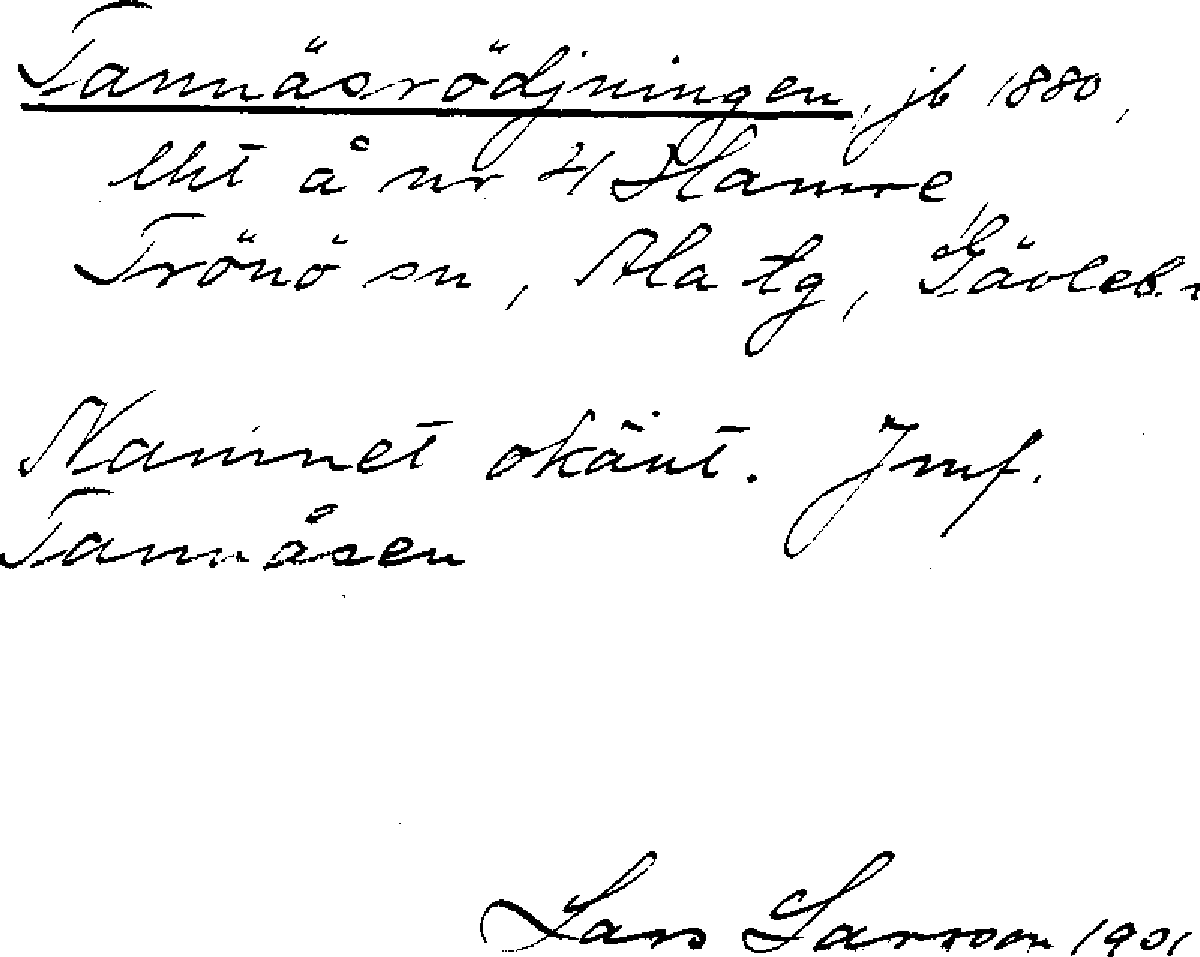 Tannäsrödjningen, jb 1880,
lht å nr 4 Hamre,
Trönö sn, Ala tg, Gävleb.
Namnet okänt. Jmf.
Tannåsen
Lars Larsson 1901